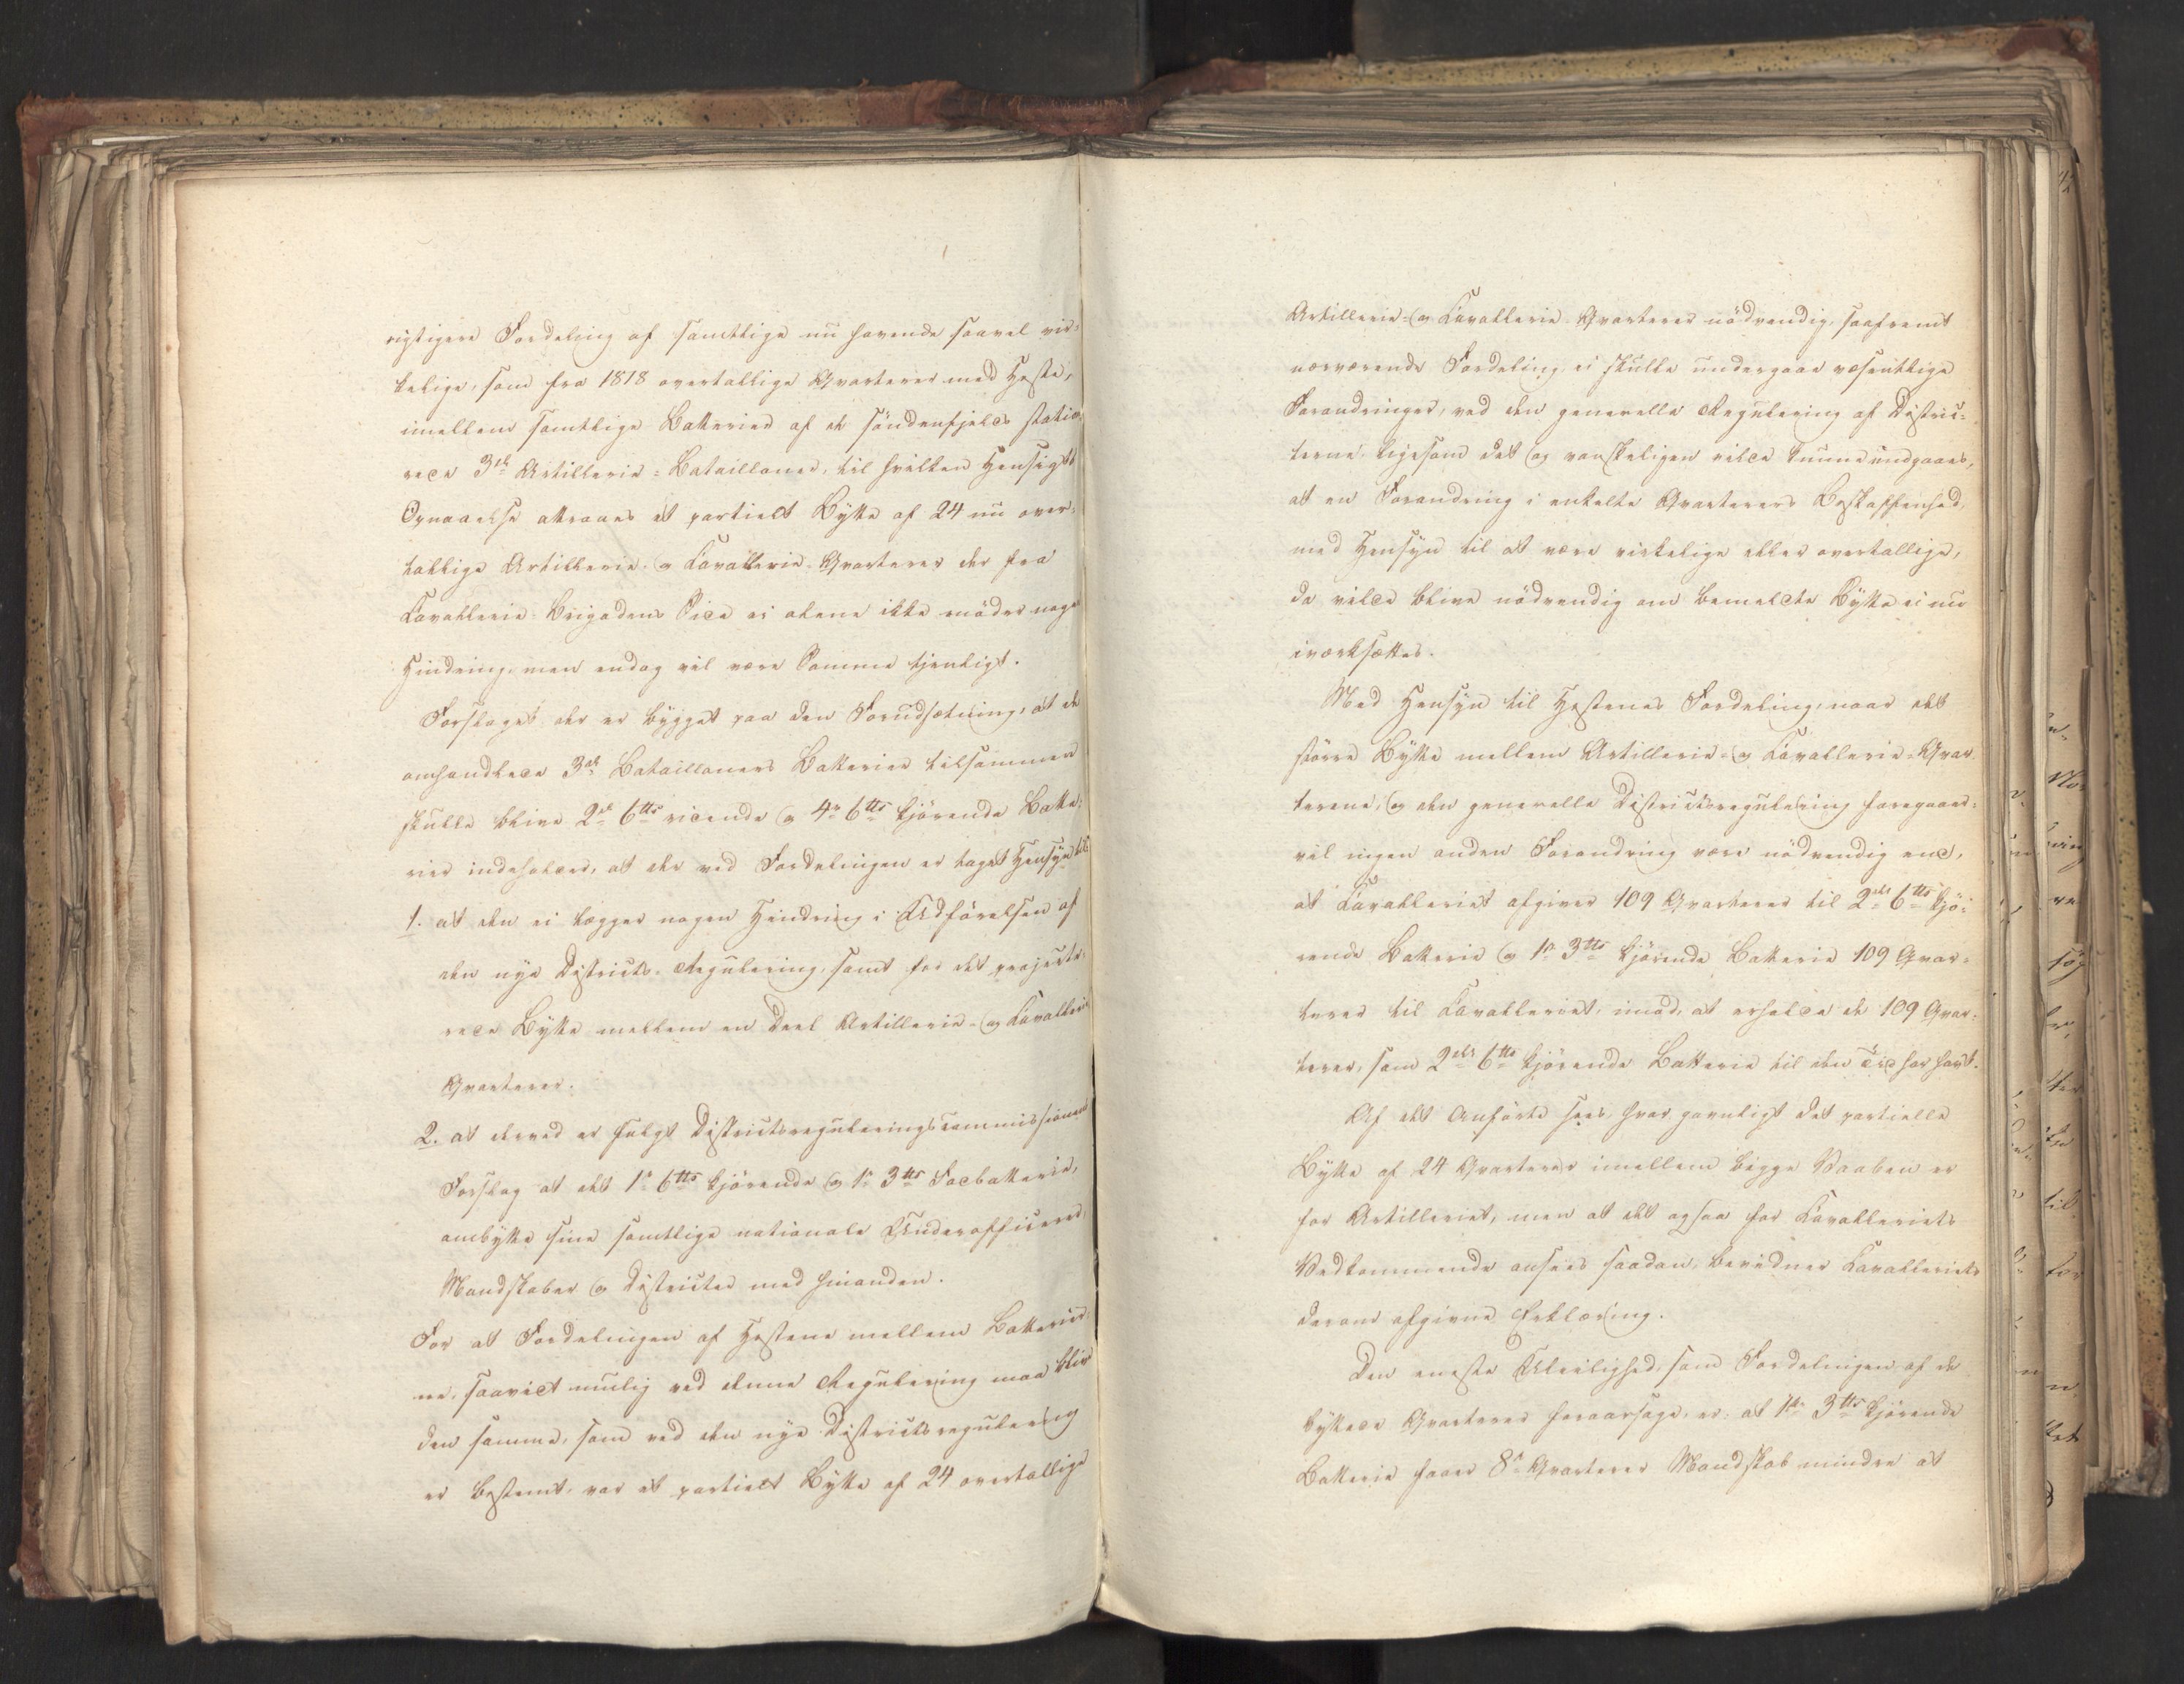 rigtigere Fordeling af samtlige nu havende saavel vir-
kelige, som fra 1818 overtallige Qvarterer med Heste,
imellem samtlige Batterier af de söndenfjelds statio-
nerede 3de Artillerie-Batailloner, til hvilken Hensigts
Opnaaelse attraaes et partielt Bytte af 24 nu over-
tallige Artillerie- og Cavallerie-Qvarterer der fra
Cavallerie-Brigadens Side ei alene ikke möder noget
Hindring, men endog vil være samme tjenligt.
Forslaget der er bygget paa den Forudsætning, at de
omhandlede 3de Batailloners Batterier tilsammen
skulle blive 2de 6tts ridende og 4re 6tts kjörende Batte-
rier indeholder, at der ved Fordelingen er taget Hensyn til
1. at den ei lægger nogen Hindring i Udförelsen af
den nye Districts-Regulering, samt for det projecte-
rede Bytte mellem en Deel Artillerie- og Cavallerie
Qvarterer.
2. at derved er fulgt Districtsreguleringscommissionens
Forslag at det 1te 6tts kjörende og 1te 3tts Fodbatterie,
ombytte sine samtlige nationale Underofficerer,
Mandskaber og Districter med hinanden.
For at Fordelingen af Hestene mellem Batterier-
ne, saavidt muelig ved denne Regulering maa blive
den samme, som ved den nye Districtsregulering
er bestemt, var et partielt Bytte af 24 overtallige
Artillerie- og Cavallerie-Qvarterer nödvendig, saafremt
nærværende Fordeling, ei skulle undergaae væsentlige
Forandringer, ved den generelle Regulering af Distric-
terne, ligesom det og vanskeligen vilde kunne undgaaes,
at en Forandring i enkelte Qvarterers Beskaffenhed,
med Hensyn til at være virkelige eller overtallige,
da vilde blive nödvendig om bemeldte Bytte ei nu
iværksættes.
Med Hensyn til Hestenes Fordeling, naar det
större Bytte mellem Artillerie- og Cavallerie-Qvar-
tererne, og den generelle Districtsregulering foregaaer,
vil ingen anden Forandring være nödvendig end,
at Cavalleriet afgiver 109 Qvarterer til 2det 6tts kjö-
rende Batterie og 1te 3tts kjörende Batterie 109 Qvar-
terer til Cavalleriet, imod, at erholde de 109 Qvar-
terer, som 2det 6tts kjörende Batterie til den Tid har havt.
Af det Anförte sees, hvor gavnligt det partielle
Bytte af 24 Qvarterer imellem begge Vaaben er
for Artilleriet, men at det ogsaa for Cavalleriets
Vedkommende ansees saadan, bevidner Cavalleriets
derom afgivne Erklæring.
Den eneste Uleilighed, som Fordelingen af de
byttede Qvarterer foraarsage, er, at 1te 3tts kjörende
Batterie faaer 8te Qvarterer Mandskab mindre at